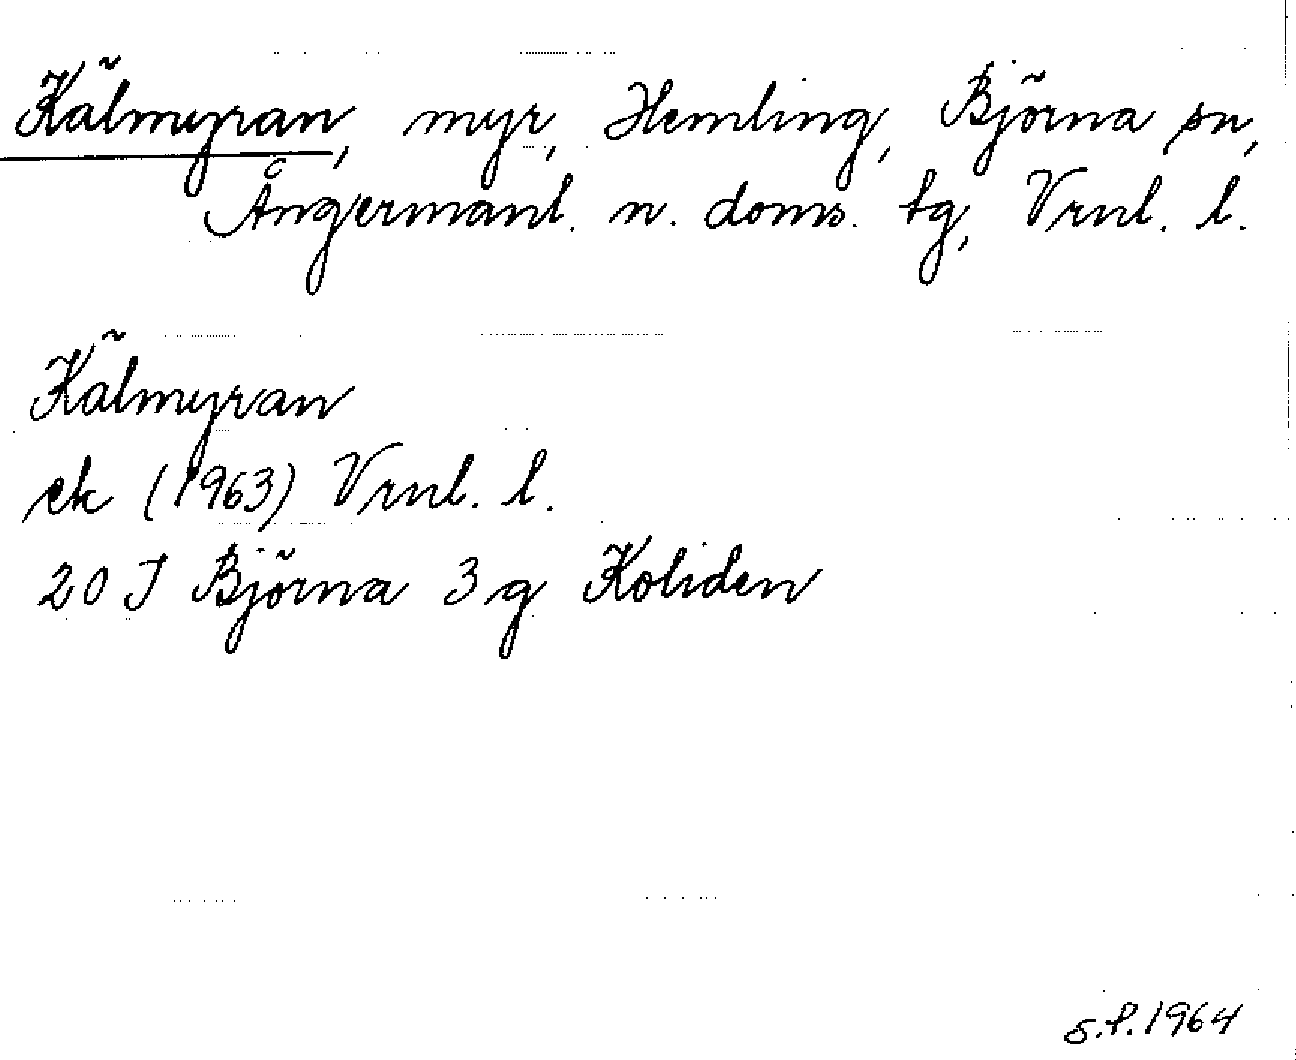 Kälmyran, myr, Hemling, Björna sn,
Ångermanl. n. doms. tg, Vrnl. l.
Kälmyran
ek (1963) Vrnl. l.
20 J Björna 3 g Koliden
s.f. 1964